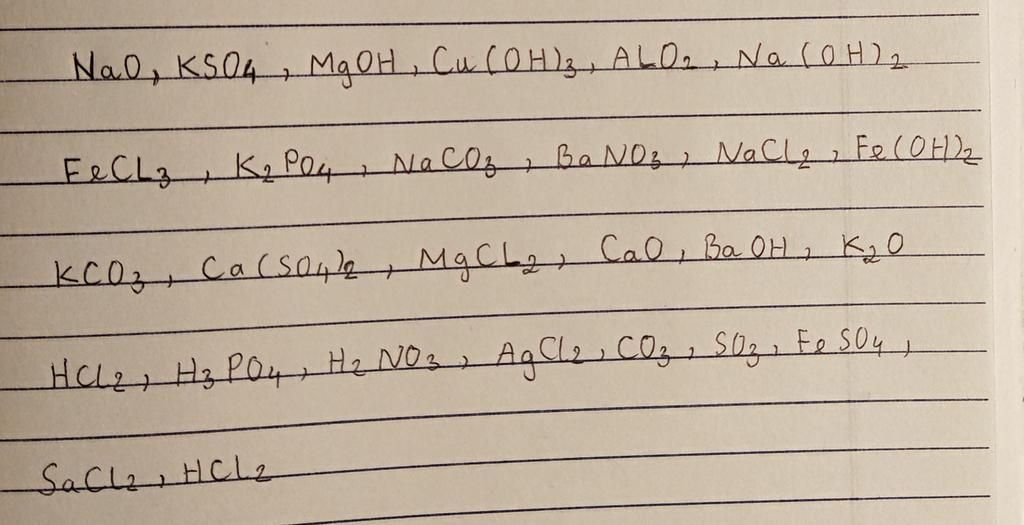 NaO, KSO4, MgOH, Cu(OH)3, ALO2, Na(OH)2
FeCL3, K2PO4, NaCO3, BaNO3, NaCL2, Fe(OH)2
KCO3, Ca(SO4)2, MgCL2, CaO, BaOH, K2O
HCl2, H3PO4, H2NO3, AgCl2, CO3, SO3, FeSO4,
SaCl2, HCl2